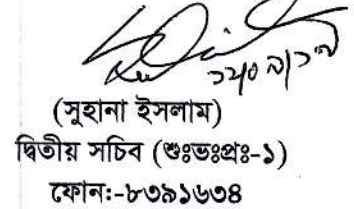 (সুহানা ইসলাম)
দ্বিতীয় সচিব (শুঃভঃপ্রঃ-১)
ফোন:-৮৩৯১৬৩৪